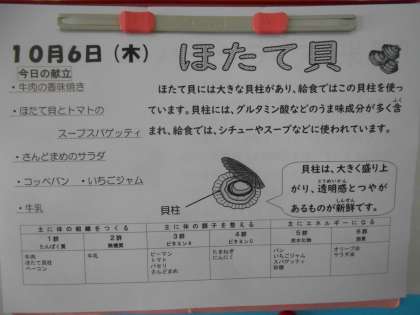 10月6日（木）
ほたて貝
今日の献立
・牛肉の香味焼き
・ほたて貝とトマトの
スープスパゲッティ
・さんどまめのサラダ
・コッペパン ・いちごジャム
・牛乳
ほたて貝には大きな貝柱があり、給食ではこの貝柱を使っ
ています。貝柱には、グルタミン酸などのうま味成分が多く含
まれ、給食では、シチューやスープなどに使われています。
貝柱は、大きく盛り上
がり、透明感とつやが
あるものが新鮮です。
貝柱
主に体の組織をつくる 主に体の調子を整える 主にエネルギーになる
1群 2群 3群 4群 5群 6群
たんぱく質 無機質 ビタミンA ビタミンC 炭水化物 脂質
牛肉 牛乳 ピーマン たまねぎ パン オリーブ油
ほたて貝柱 トマト にんにく いちごジャム サラダ油
ベーコン パセリ スパゲッティ
さんどまめ 砂糖